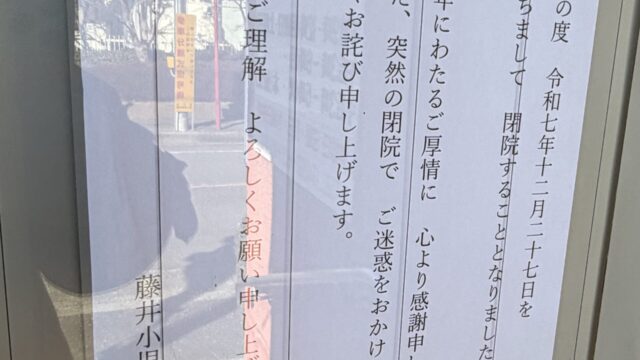 の度 令和七年十二月二十七日を
ちまして 閉院することとなりました
年にわたるご厚情に 心より感謝申し
た、突然の閉院で ご迷惑をおかけ
お詫び申し上げます。
ご理解 よろしくお願い申し上げ
藤井小児